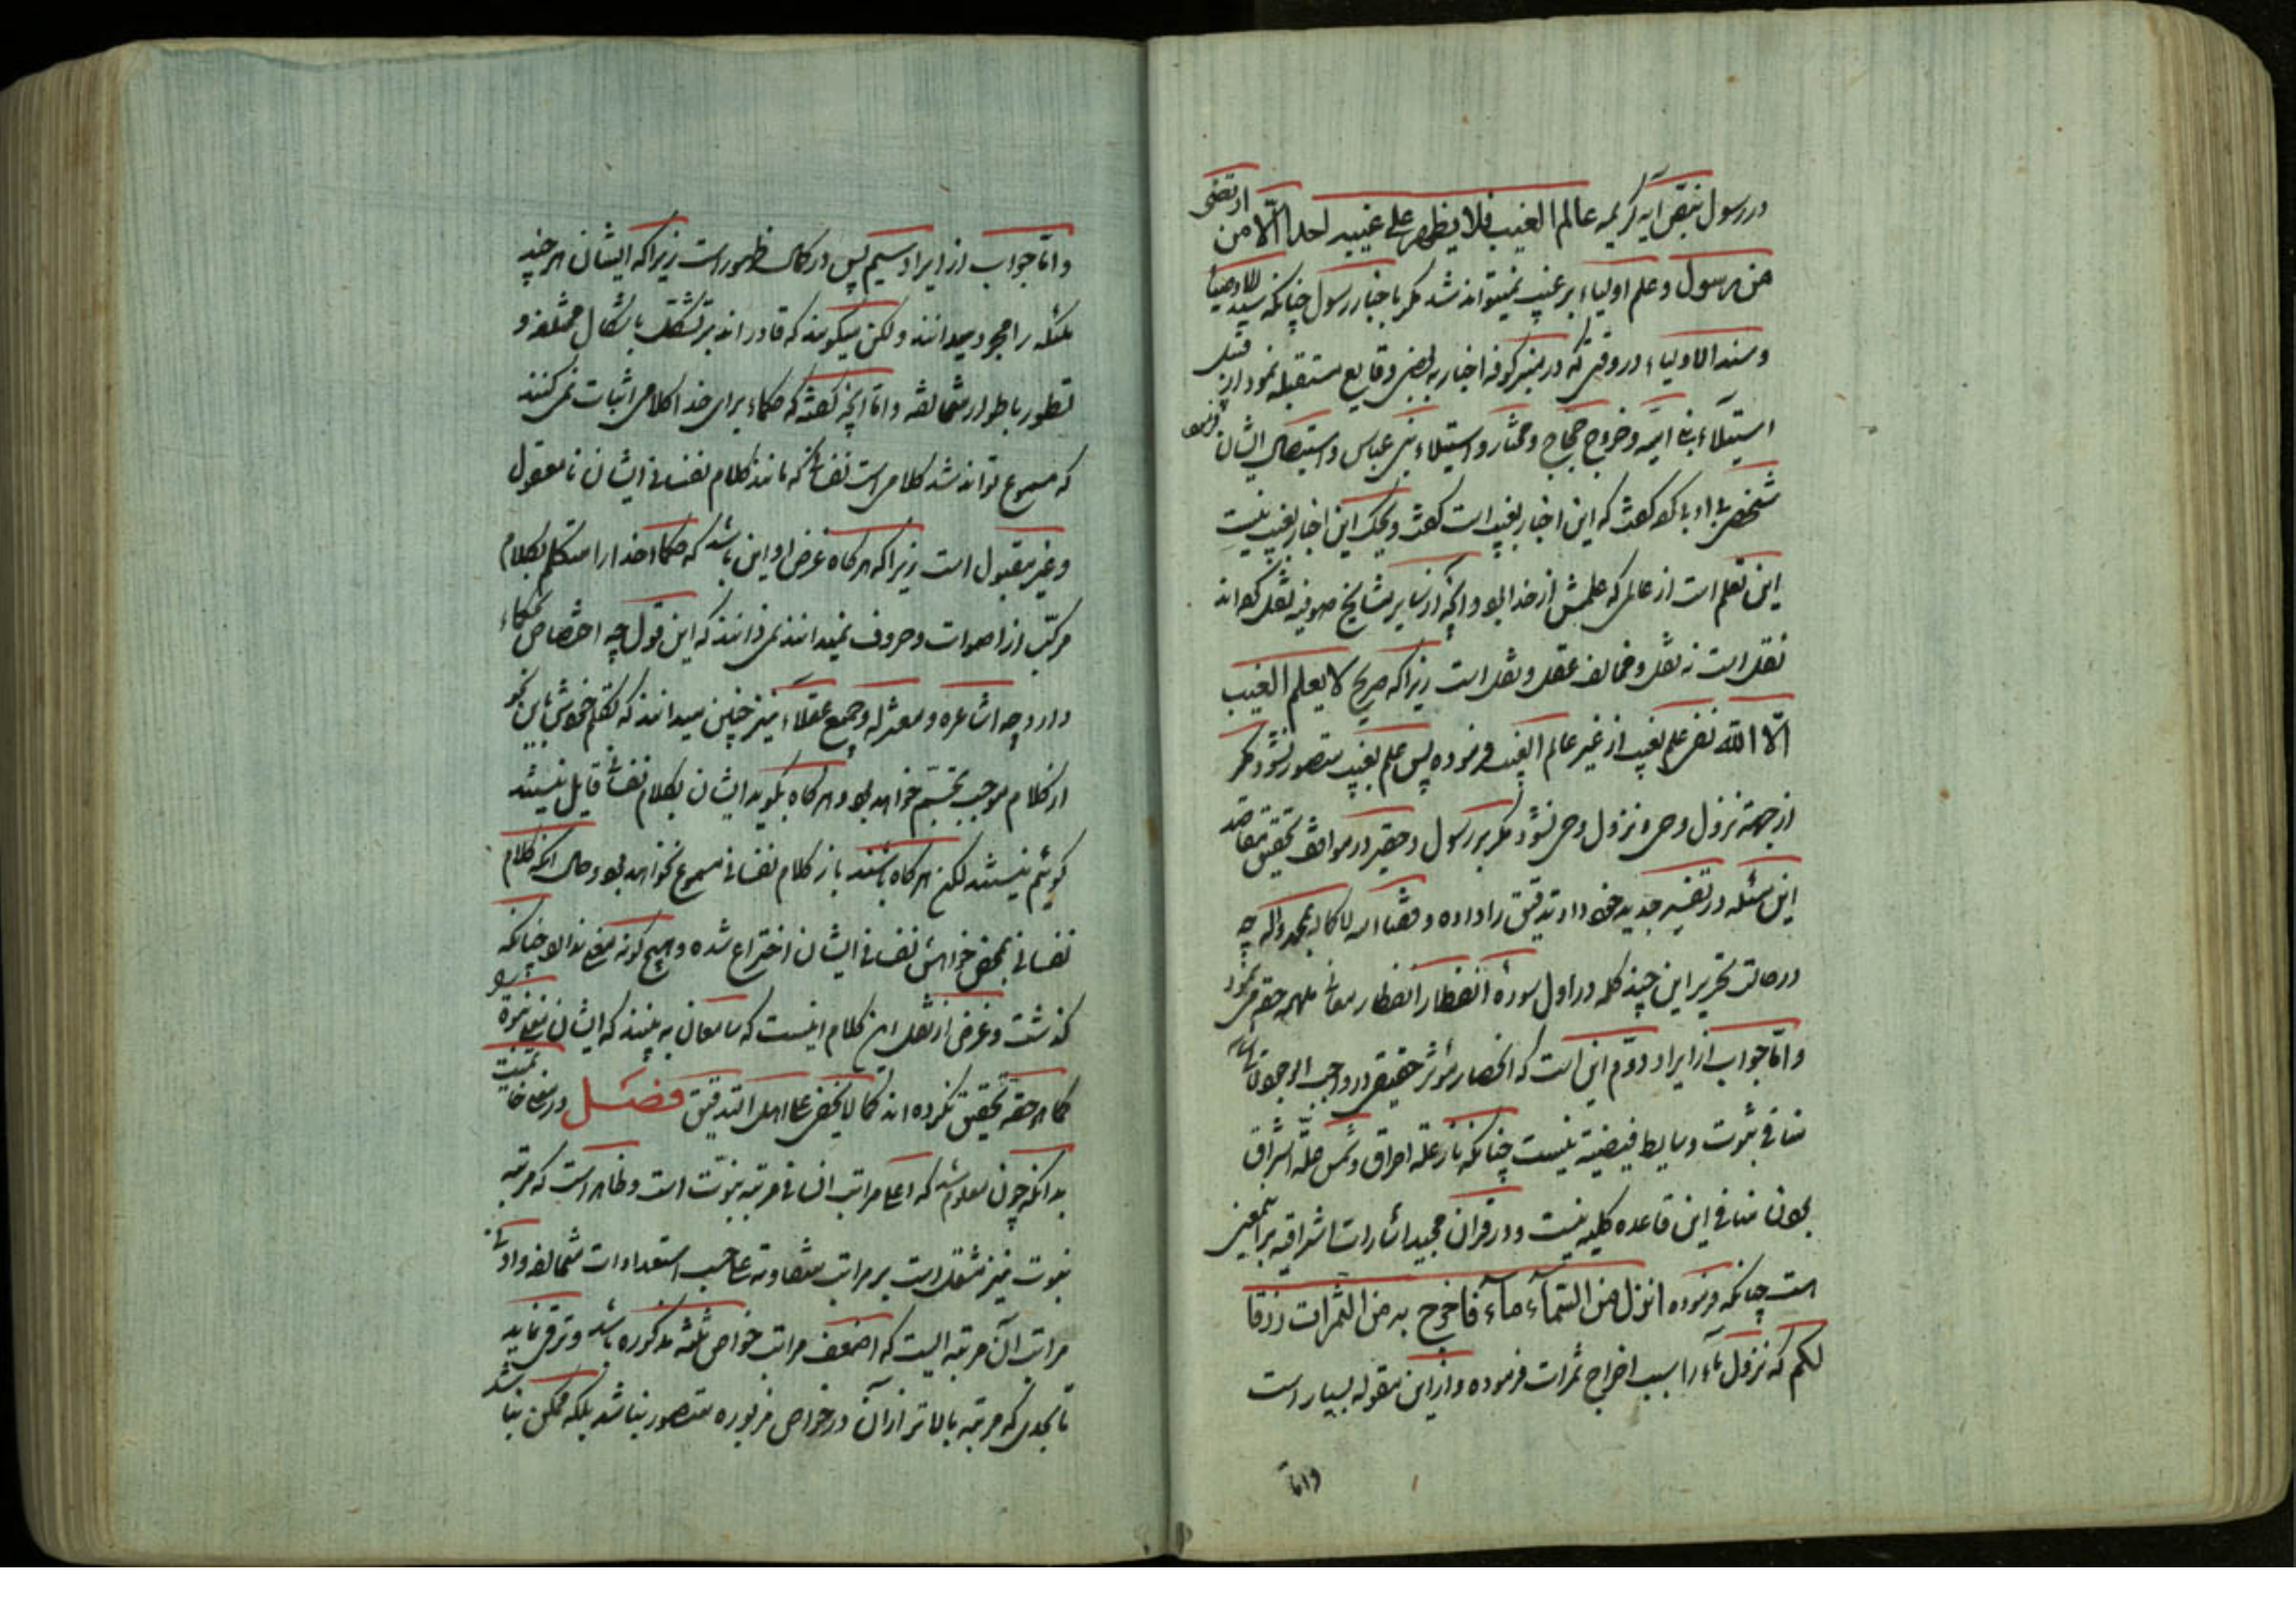 در رسول بنقص آیه کریمه عالم الغیب فلا یظهر علی غیبه احدا الّا من ارتضی
من رسول و علم اولیاء بر غیب نمیتواند شد مکر باخبار رسول چنانکه سید الاوصیا
و سند الاولیاء در وقتی که در منبر کوفه اخبار به بعضی وقایع مستقبله نمود از قبیل
استیلاء بنی امیّه و خروج حجاج و مختار و استیلاء بنی عباس و استیصال ایشان فرمود
شخصی باو که این اخبار بغیب است ویحک این اخبار بغیب نیست
این تعلم است از عالمی که علمش از خدا بود و آنچه از سایر مشایخ صوفیه نقل کرده‌اند
نقل است نه نقل و مخالف عقل و نقل است زیرا که صریح لا یعلم الغیب
الّا الله نفی علم بغیب از غیر عالم الغیب فرموده پس علم بغیب متصور نشود مکر
از جهة نزول وحی و نزول وحی نشود مکر بر رسول و حقیر در مواقف تحقیق مقاصد
این مسئله در تفسیر جدید خود داد تدقیق را داده وفقنا الله لاکماله بمحمد وآله چه
در حالت تحریر این چند کلمه در اول سوره انفطار انفطار معانی ملهمه حقه می نمود
و امّا جواب از ایراد دوّم این است که انحصار مؤثر حقیقی در واجب الوجود تعالی شانه
منافی ثبوت وسایط فیضیّه نیست چنانکه نار علة احراق و شمس علّة اشراق
بودن منافی این قاعده کلیه نیست و در قران مجید اشارات اشراقیه براینمعنی
هست چنانکه فرموده انزل من السّماء ماء فاخرج به من الثمرات رزقا
لکم که نزول ماء را سبب اخراج ثمرات فرموده و از این مقوله بسیار است
و امّا
و امّا جواب از ایراد سیم پس در کمال ظهور است زیرا که ایشان هر چند
ملئکه را مجرد میدانند ولکن میکویند که قادر اند بر تشکل باشکال مختلفه و
تطور باطوار متخالفه و امّا آنچه کفته که حکماء برای خدا کلامی اثبات نمی کنند
که مسموع تواند شد کلامی است نفسانی که مانند کلام نفسانی ایشان نامعقول
و غیر مقبول است زیرا که هر کاه غرض او این باشد که حکما خدا را متکلم بکلام
مرکّب از اصوات و حروف نمیدانند نمی دانند که این قول چه اختصاص بحکماء
دارد چه اشاعره و معتزله و جمیع عقلاء نیز چنین میدانند که تکلم خدا باین نحو
از کلام موجب تجسّم خواهد بود و هر کاه بکوید ایشان بکلام نفسانی قایل نیستند
کوئیم نیستند لکن هر کاه باشند باز کلام نفسانی مسموع نخواهد بود و حال آنکه کلام
نفسانی بمحض خواهش نفسانی ایشان اختراع شده و هیچ کونه معنی ندارد چنانکه
کذشت و غرض از نقل این کلام اینست که سامعان به بینند که ایشان معنی نبوة را
کما هو حقه تحقیق نکرده اند کما لا یخفی علی اهل التدقیق فصل در معنی خاتمیت
بدانکه چون معلوم شد که اعلی مراتب انسانی مرتبه نبوّت است و ظاهر است که مرتبه
نبوت نیز مشتمل است بر مراتب متفاوته علی حسب استعدادات متخالفه و ادنی
مراتب آن مرتبه ایست که اضعف مراتب خواص ثلثه مذکوره باشد و ترقی نماید
تا بحدی که مرتبه بالاتر از آن در خواص مزبوره متصور نباشد بلکه ممکن نباشد